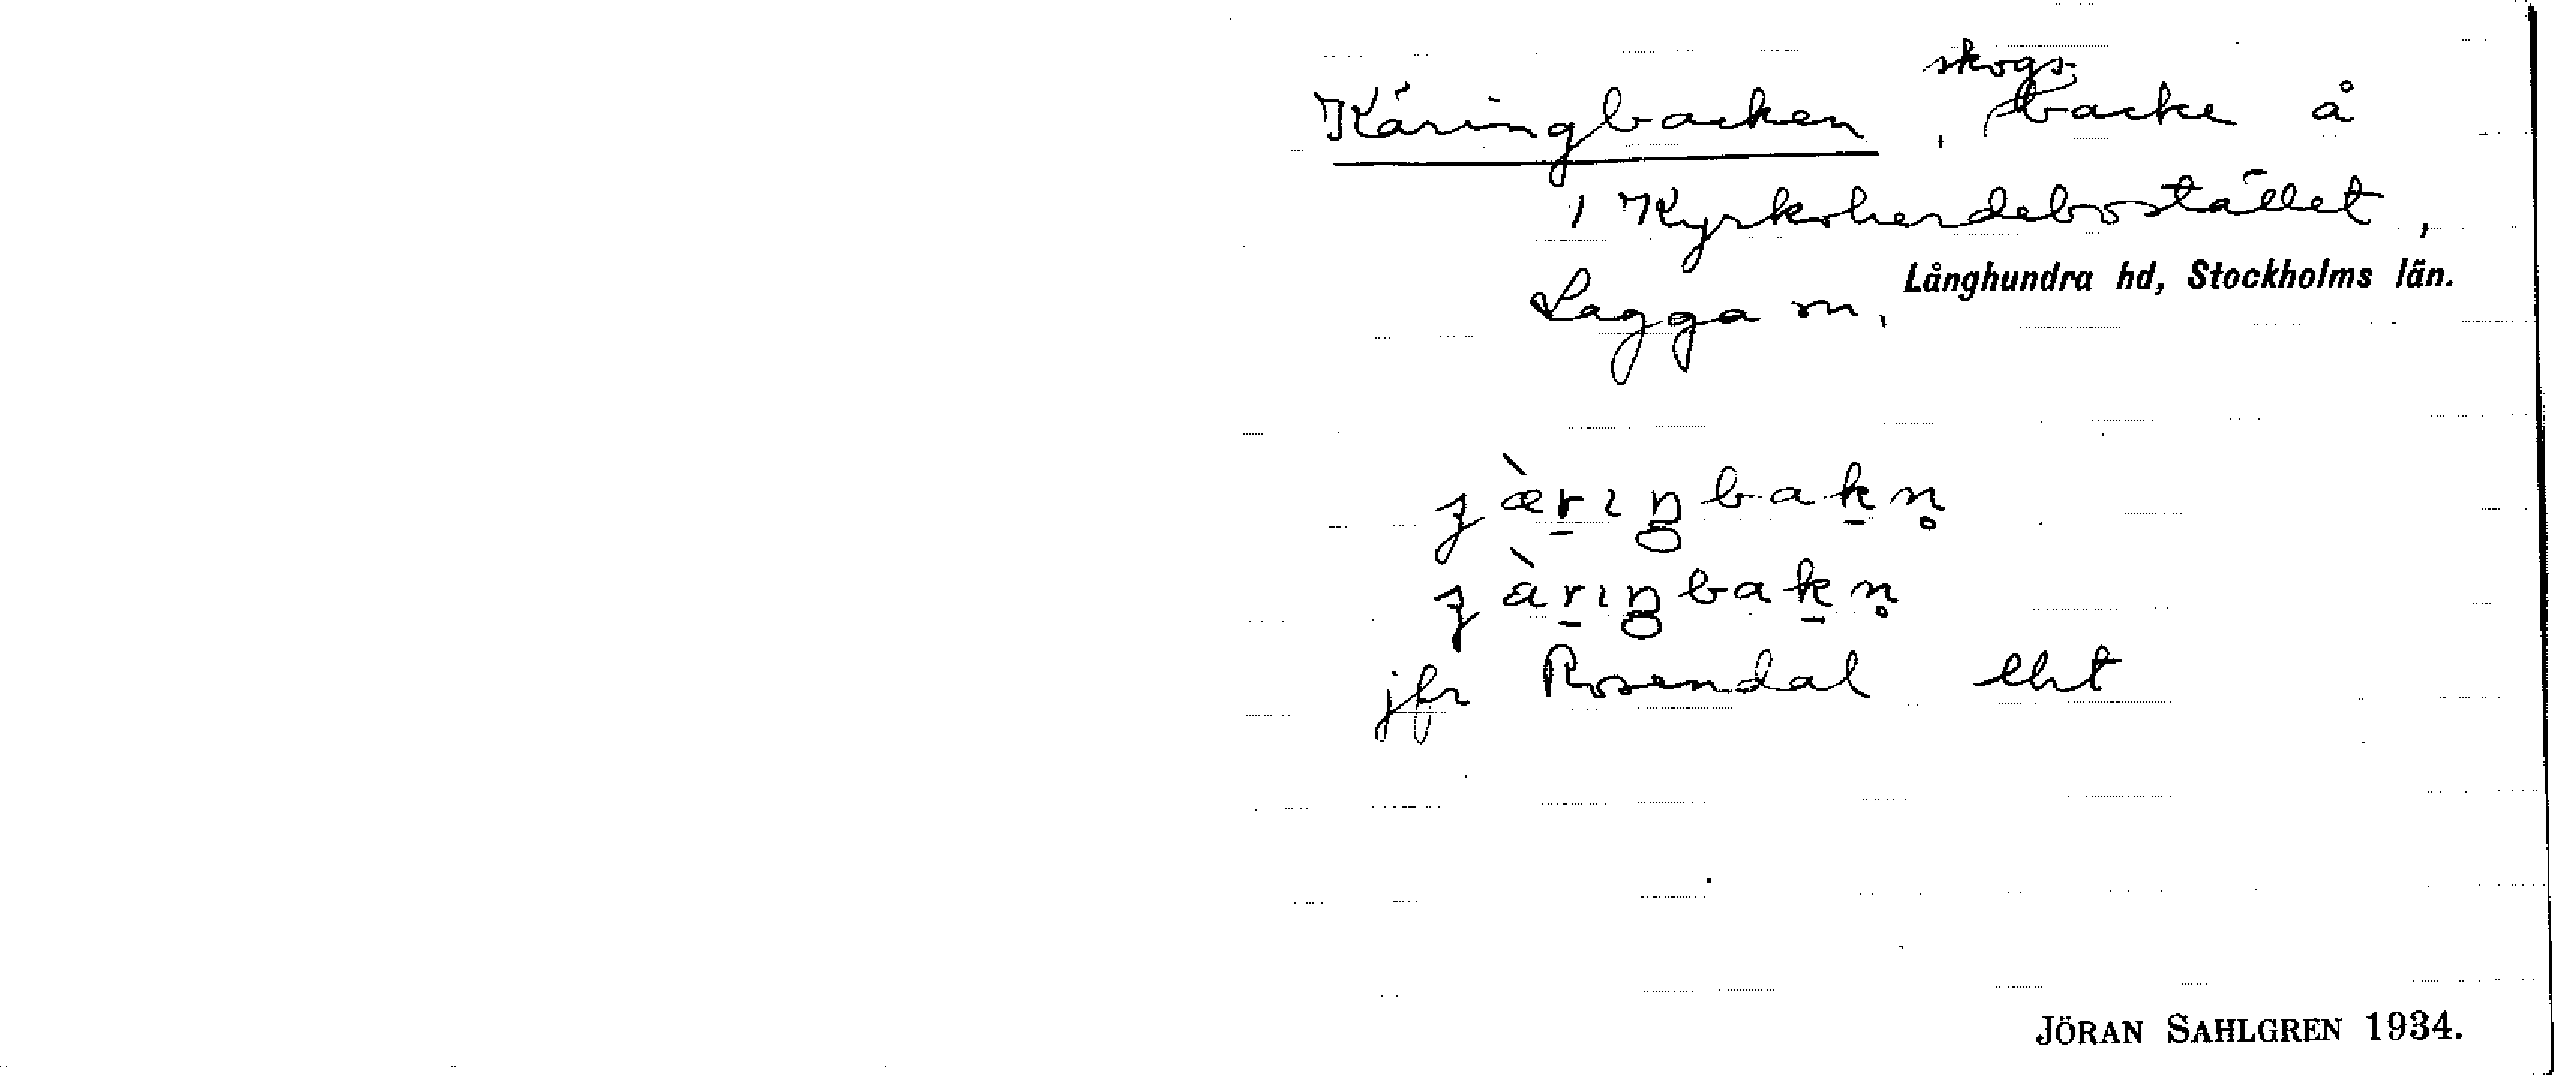 Käringbacken, skogsbacke å
1 Kyrkoherdebostället,
Lagga sn, Långhundra hd, Stockholms län.
jfr Rosendal
JÖRAN SAHLGREN 1934.